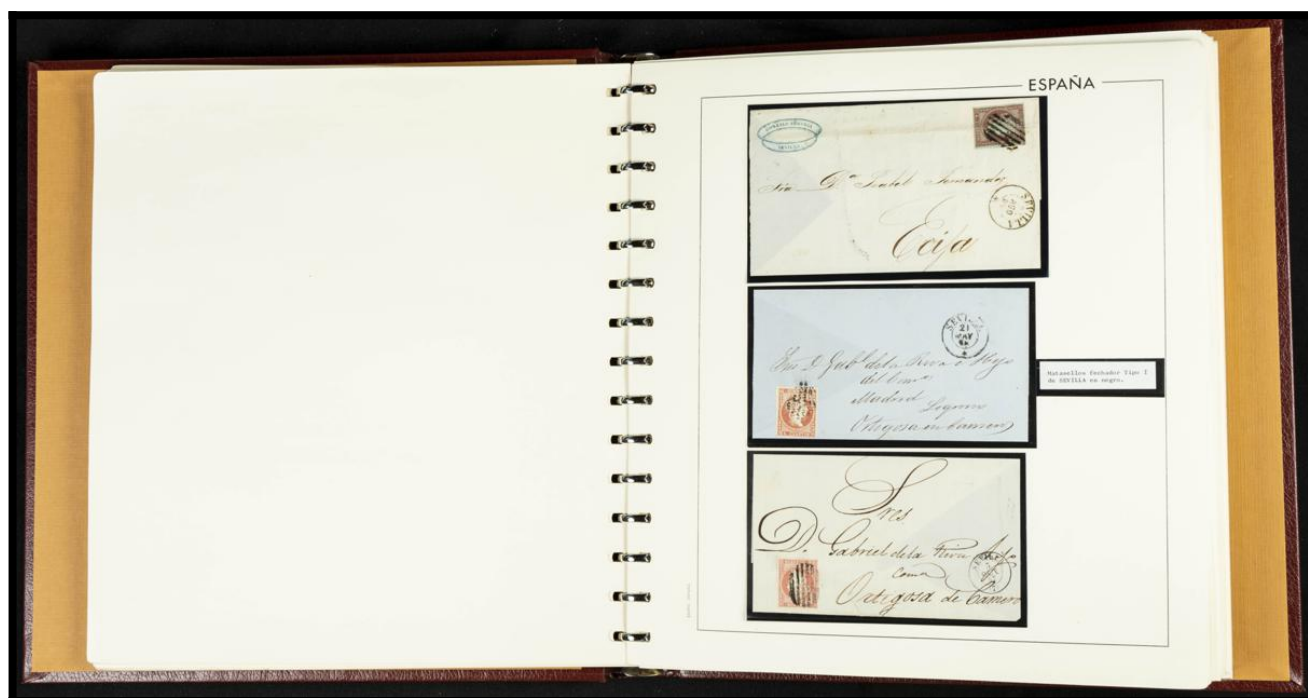 ESPAÑA
SEVILLA
Sra Dª Isabel Fernandez
SEVILLA
Ecija
SEVILLA
21
Sres D. Gabl de la Riva e Hijo
del Comº
Madrid
Logroño
Ortigosa en Cameros
Matasellos fechador Tipo I
de SEVILLA en negro.
Sres.
D. Gabriel de la Riva
Ortigosa de Camero